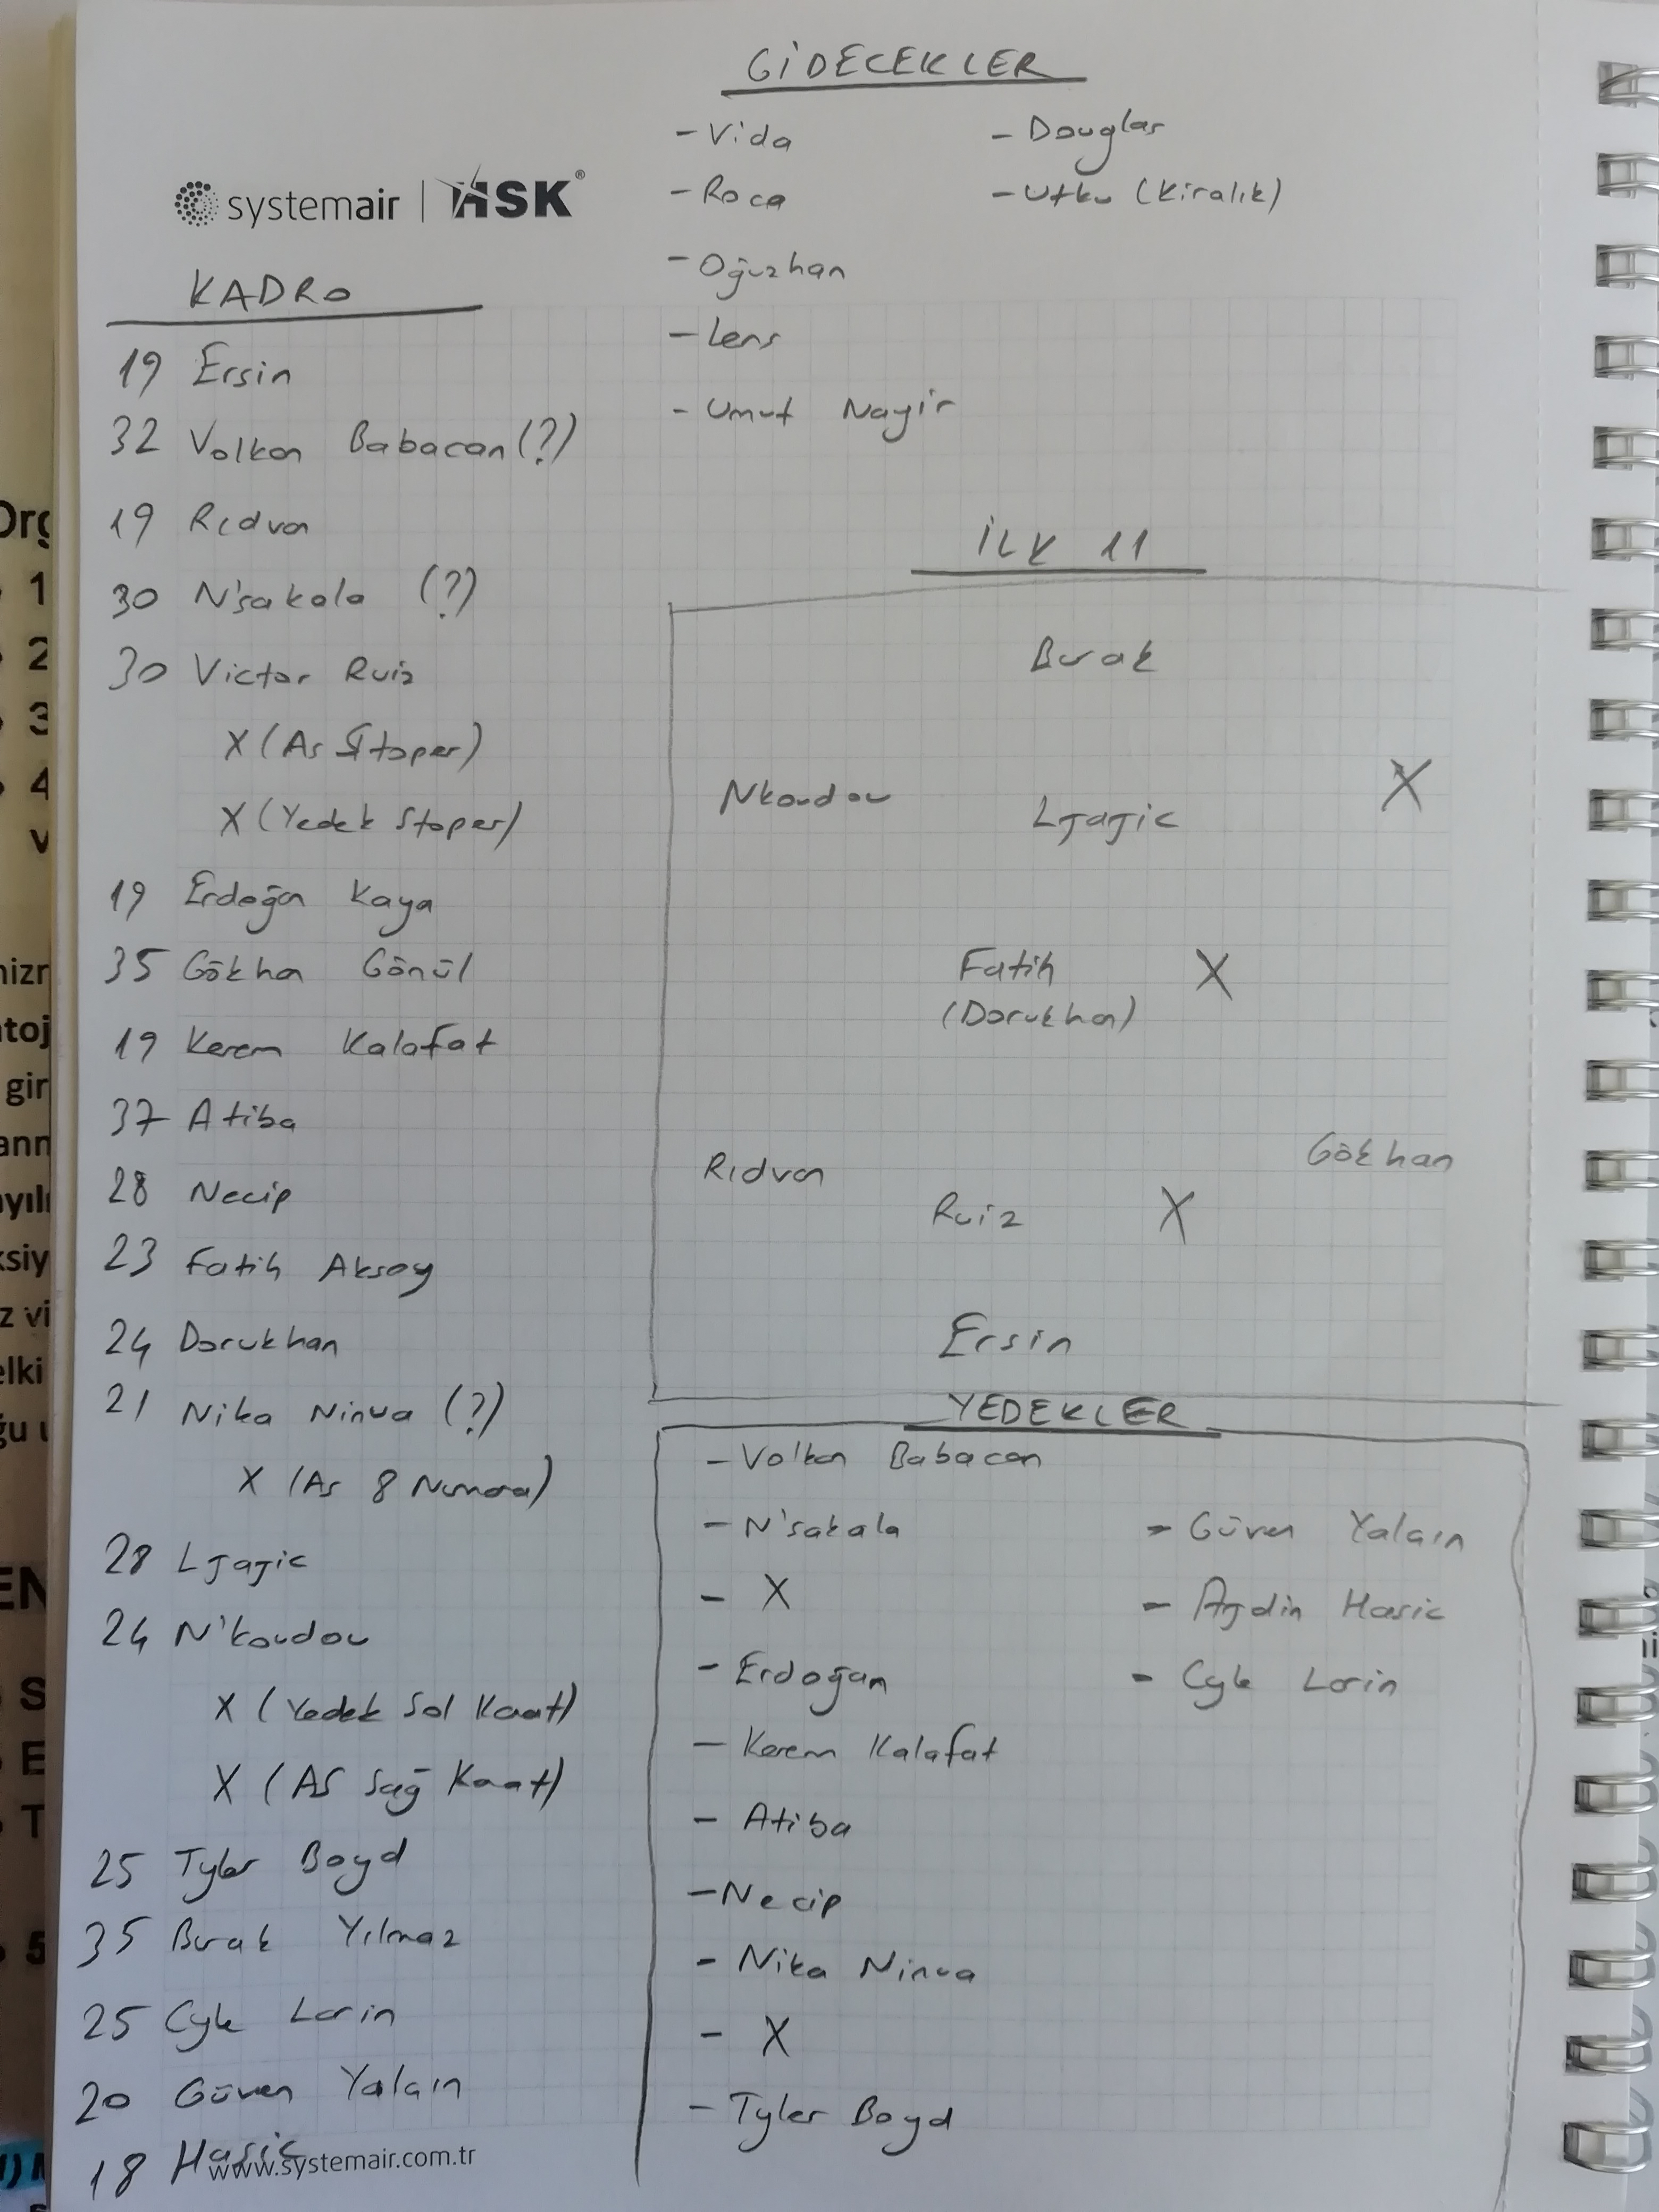 GİDECEKLER
- Vida
- Roca
- Oğuzhan
- Lens
- Umut Nayir
- Douglas
- Utku (Kiralık)
systemair | HSK®
KADRO
19 Ersin
32 Volkan Babacan (?)
19 Rıdvan
30 N'sakala (?)
30 Victor Ruiz
X (As Stoper)
X (Yedek Stoper)
19 Erdoğan Kaya
35 Gökhan Gönül
19 Kerem Kalafat
37 Atiba
28 Necip
23 Fatih Aksoy
24 Dorukhan
21 Nika Ninua (?)
X (As 8 Numara)
28 Ljajic
24 N'koudou
X (Yedek Sol Kanat)
X (AS Sağ Kanat)
25 Tyler Boyd
35 Burak Yılmaz
25 Cyle Larin
20 Güven Yalçın
18 Hasic
www.systemair.com.tr
İLK 11
Burak
Nkoudou
Ljajic
X
Fatih X
(Dorukhan)
Rıdvan
Gökhan
Ruiz X
Ersin
YEDEKLER
- Volkan Babacan
- N'sakala
- X
- Erdoğan
- Kerem Kalafat
- Atiba
- Necip
- Nika Ninua
- X
- Tyler Boyd
- Güven Yalçın
- Ajdin Hasic
- Cyle Larin